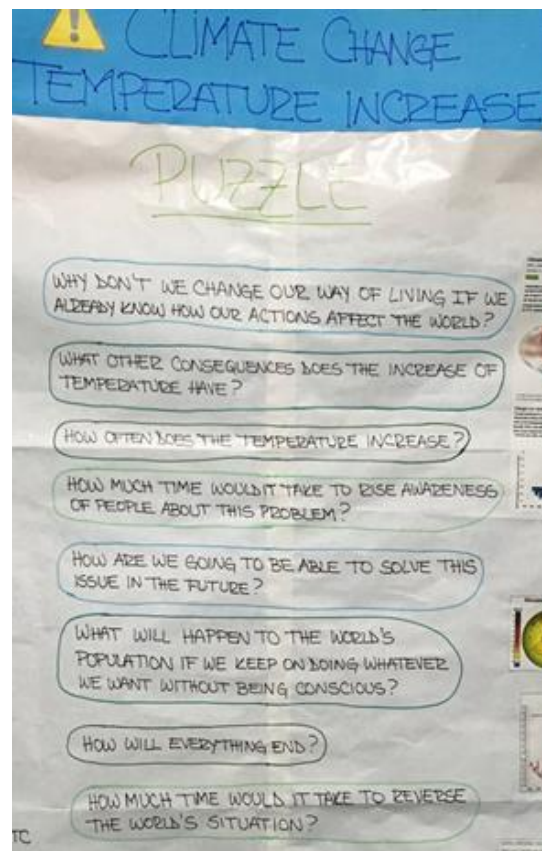 CLIMATE CHANGE
TEMPERATURE INCREASE
PUZZLE
WHY DON'T WE CHANGE OUR WAY OF LIVING IF WE
ALREADY KNOW HOW OUR ACTIONS AFFECT THE WORLD?
WHAT OTHER CONSEQUENCES DOES THE INCREASE OF
TEMPERATURE HAVE?
HOW OFTEN DOES THE TEMPERATURE INCREASE?
HOW MUCH TIME WOULD IT TAKE TO RISE AWARENESS
OF PEOPLE ABOUT THIS PROBLEM?
HOW ARE WE GOING TO BE ABLE TO SOLVE THIS
ISSUE IN THE FUTURE?
WHAT WILL HAPPEN TO THE WORLD'S
POPULATION IF WE KEEP ON DOING WHATEVER
WE WANT WITHOUT BEING CONSCIOUS?
HOW WILL EVERYTHING END?
HOW MUCH TIME WOULD IT TAKE TO REVERSE
THE WORLD'S SITUATION?
TC